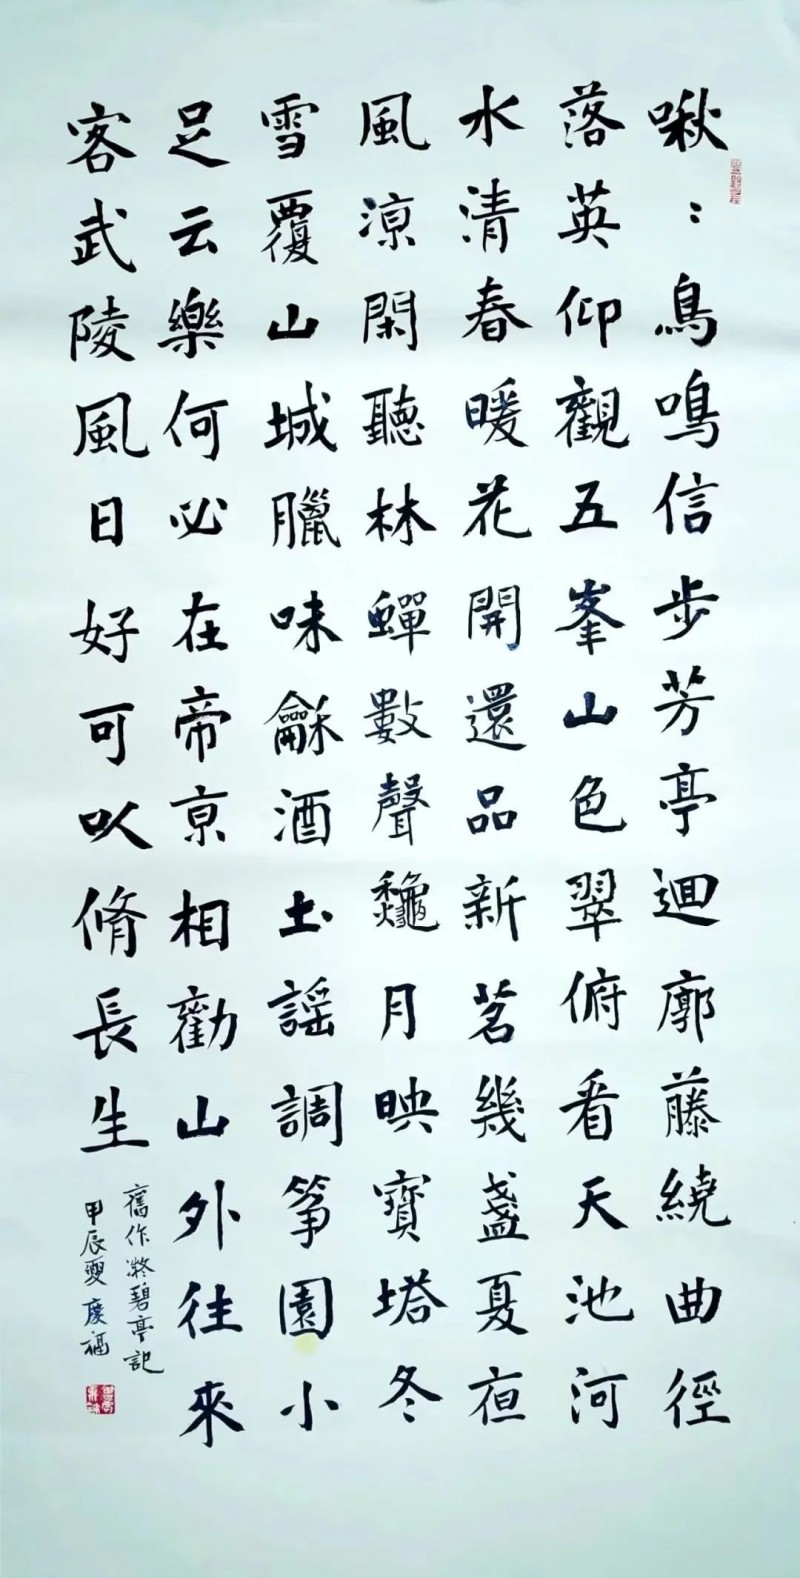 啾:鳥鳴信步芳亭迴廓藤繞曲徑
落英仰觀五峯山色翠俯看天池河
水清春暖花開還品新茗幾盞夏夜
風涼閑聽林蟬數聲龝月映寶塔冬
雪覆山城臘味龢酒土謡調筝園小
足云樂何必在帝京相勸山外往來
客武陵風日好可以脩長生
舊作凝碧亭記
甲辰夏慶福